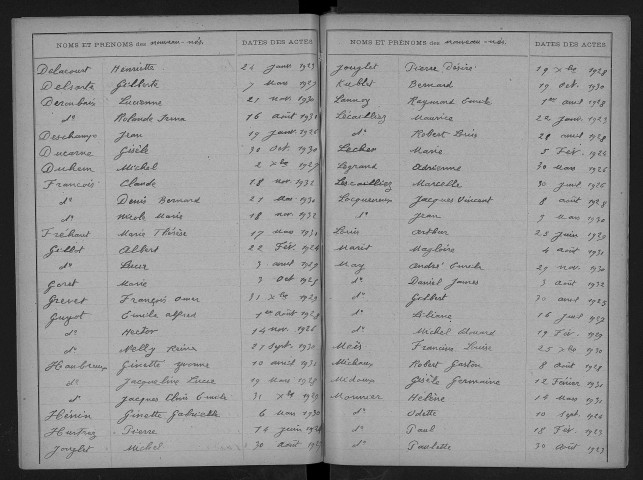 NOMS ET PRÉNOMS des nouveau-nés DATES DES ACTES
Delacourt Henriette 24 janv 1929
Delsarte Gilberte 7 Mars 1927
Derombaix Lucienne 21 nov. 1930
d° Rolande Irma 16 août 1931
Deschamps Jean 19 janv 1926
Ducarne Gisèle 30 Oct 1930
Duhem Michel 2 Xbre 1927
François Claude 18 nov. 1932
d° Denis Bernard 21 Mars 1930
d° Nicole Marie 18 nov. 1932
Fréhaut Marie Thérèse 17 Mars 1931
Gillot Albert 22 Fév. 1924
d° Lucie 3 avril 1929
Goret Marie 3 Oct 1925
Grevet François Omer 31 Xbre 1929
Guyot Emile Alfred 1er Août 1928
d° Hector 14 nov. 1926
d° Nelly Reine 21 Sept. 1930
Haubreux Ginette Yvonne 10 avril 1931
d° Jacqueline Lucie 19 Mars 1928
d° Jacques Clovis Emile 31 Xbre 1929
Hénin Ginette Gabrielle 6 Mars 1930
Pierre 14 juin 1928
Jonglet Michel 30 août
NOMS ET PRÉNOMS des nouveau-nés DATES DES ACTES
Jonglet Pierre Désiré 19 Xbre 1928
Kublet Bernard 19 Oct. 1930
Lannoy Raymond Emile 1er avril 1928
Lecailliez Maurice 22 janv. 1923
d° Robert Louis 28 avril 1928
Lecher Marie 5 Fév. 1926
Legrand Adrienne 30 Mars 1926
Lescailliez Marcelle 30 1926
Locqueneux Jacques Vincent 8 août 1928
d° Jean 3 Mars 1930
Louis Arthur 23 juin 1930
Marit Magloire 4 août 1931
May André Emile 29 nov. 1930
d° Daniel James 3 août 1932
d° Gilbert 30 avril 1923
d° Liliane 16
d° Michel Edouard 19 Fév. 1929
Meès Francine Louise 25 Xbre 1930
Michaux Robert Gaston 8 août 1928
Midoux Gisèle Germaine 12 Février 1931
Monnier Hélène 14 Mars 1931
d° Odette 10 Sept. 1924
d° Paul 18 Fév. 1923
d° Paulette 30 Août 1927